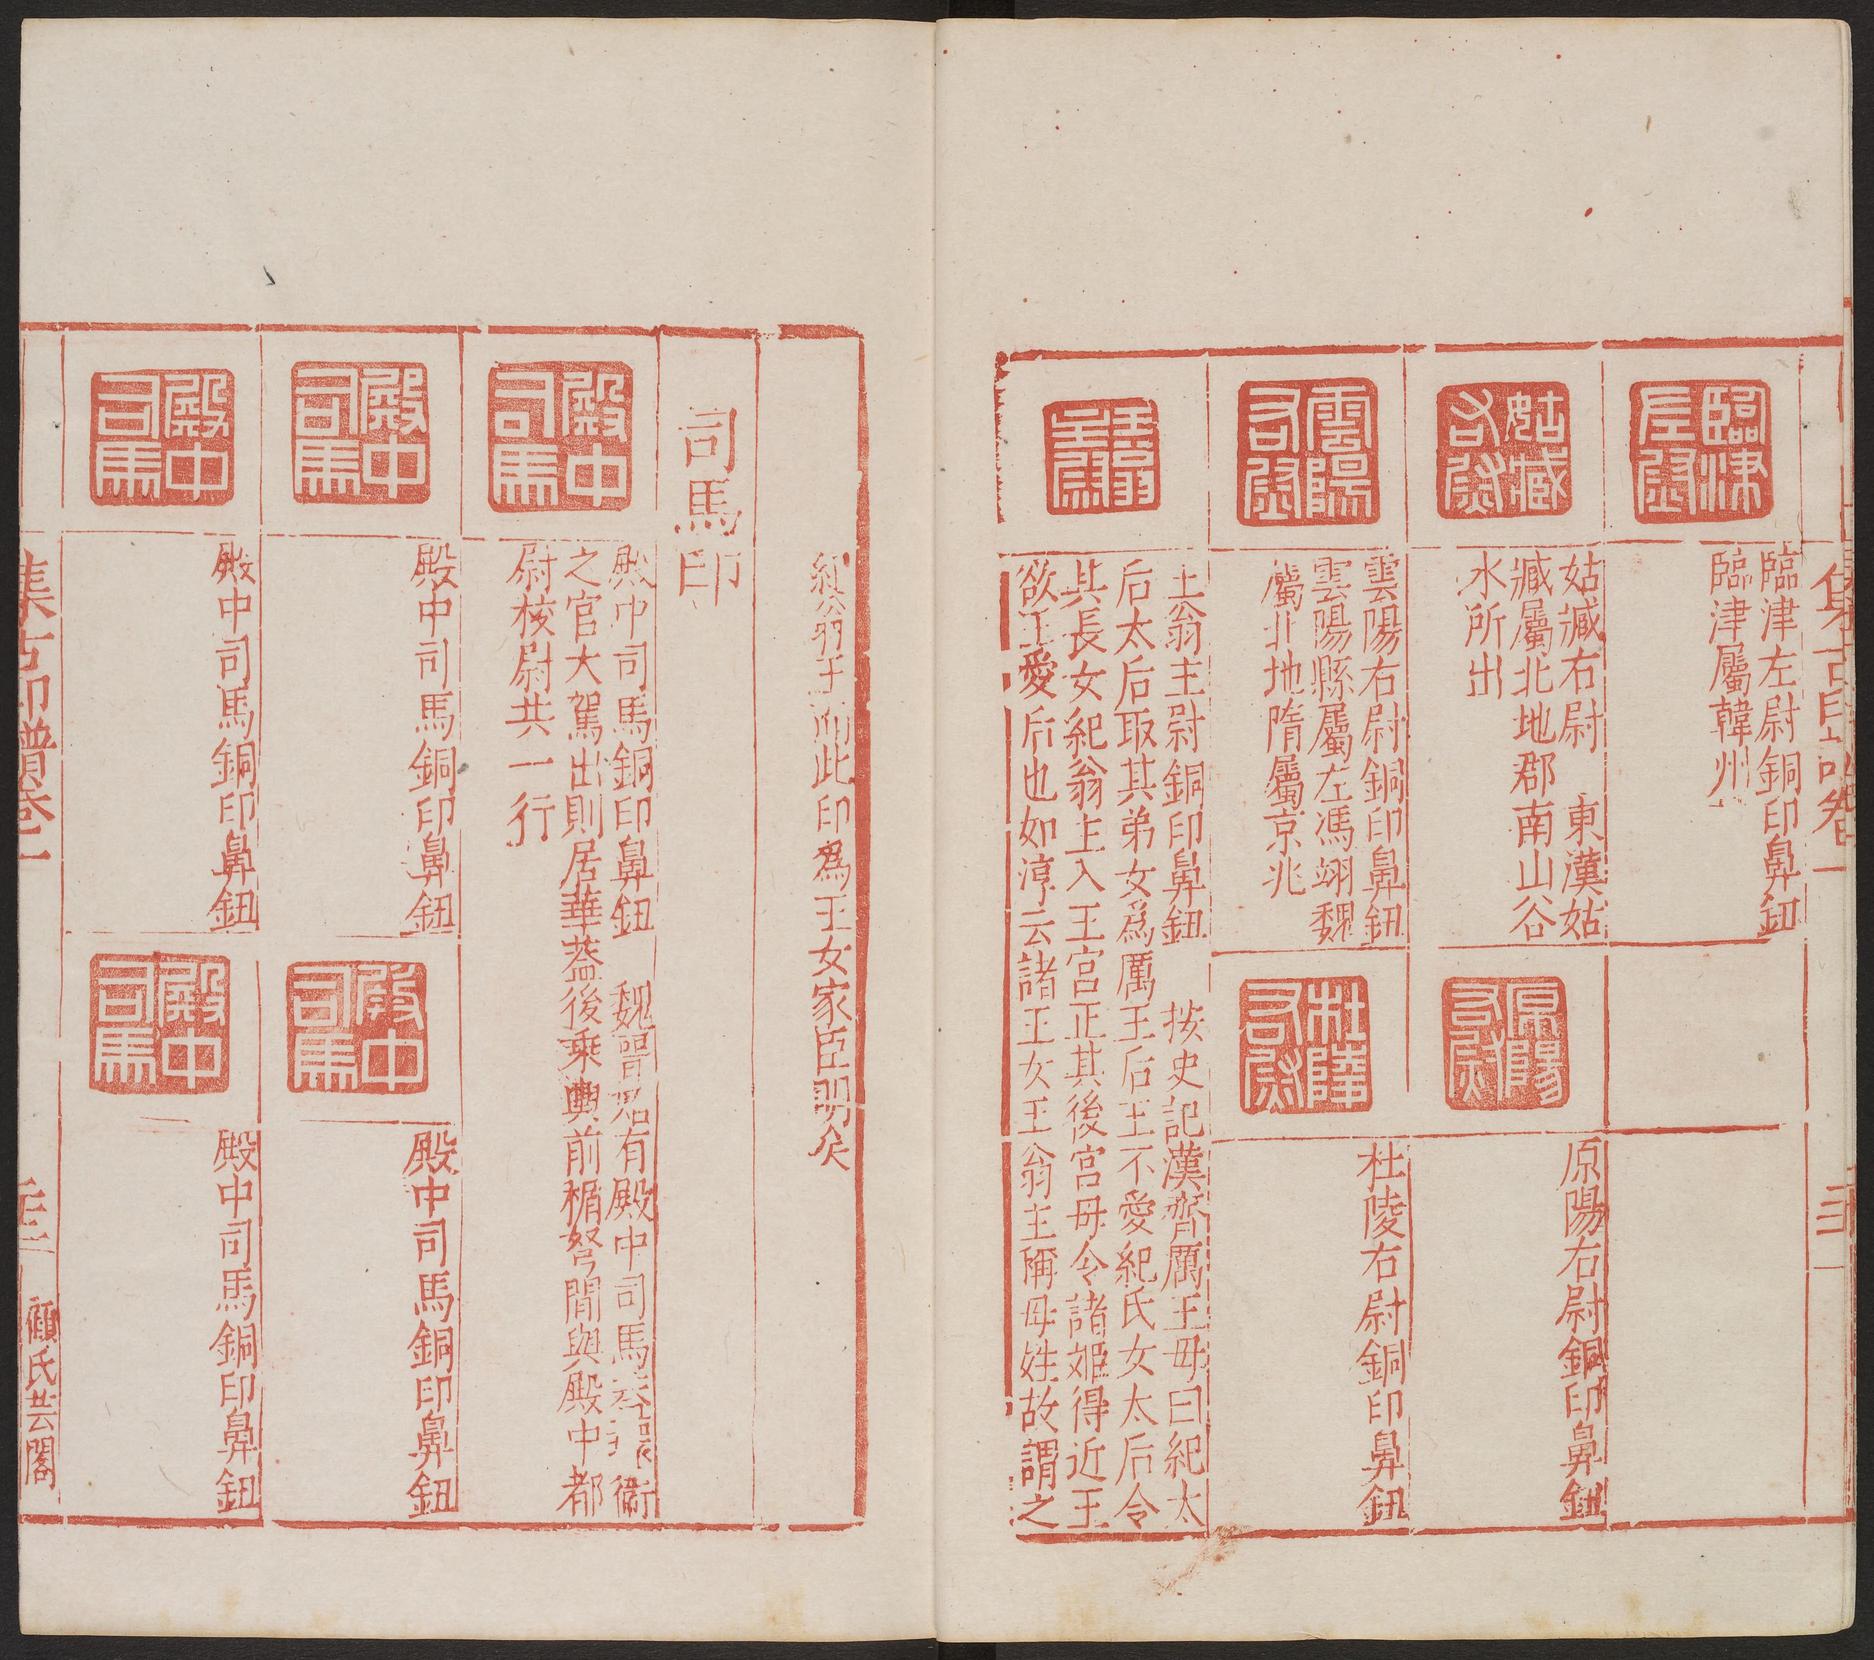 集古印譜卷一
臨津左尉
臨津左尉銅印鼻鈕
臨津屬韓州
姑臧右尉
姑臧右尉　東漢姑
臧屬北地郡南山谷
水所出
原陽右尉
原陽右尉銅印鼻鈕
雲陽右尉
雲陽右尉銅印鼻鈕
雲陽縣屬左馮翊魏
屬北地隋屬京兆
杜陵右尉
杜陵右尉銅印鼻鈕
王翁主尉
王翁主尉銅印鼻鈕　按史記漢齊厲王母曰紀太
后太后取其弟女爲厲王后王不愛紀氏女太后令
其長女紀翁主入王宮正其後宮毋令諸姬得近王
欲王愛后也如淳云諸王女王翁主稱母姓故謂之
紀翁主 此印爲王女家臣明矣
司馬印
殿中司馬
殿中司馬銅印鼻鈕　魏晉 有殿中司馬 衛
之官大駕出則居華蓋後乘輿前楯弩間與殿中都
尉校尉共一行
殿中司馬
殿中司馬銅印鼻鈕
殿中司馬
殿中司馬銅印鼻鈕
殿中司馬
殿中司馬銅印鼻鈕
殿中司馬
殿中司馬銅印鼻鈕
集古印譜卷一
顧氏芸閣